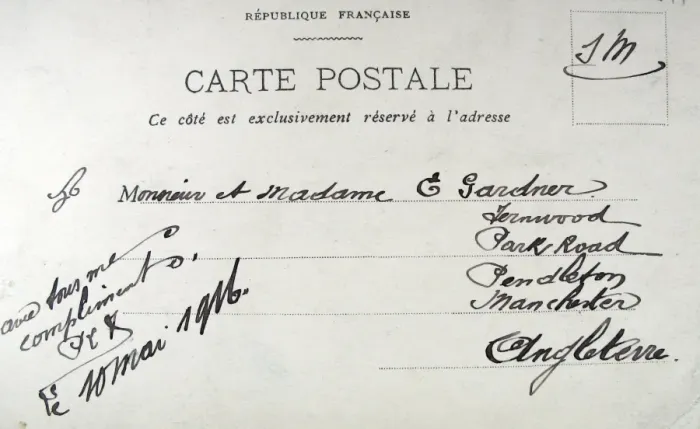 RÉPUBLIQUE FRANÇAISE
CARTE POSTALE
Ce côté est exclusivement réservé à l'adresse
S M
Monsieur et Madame E Gardner
Fernwood
Park Road
Pendleton
Manchester
Angleterre.
avec tous me
compliment
le 10 mai 1916.